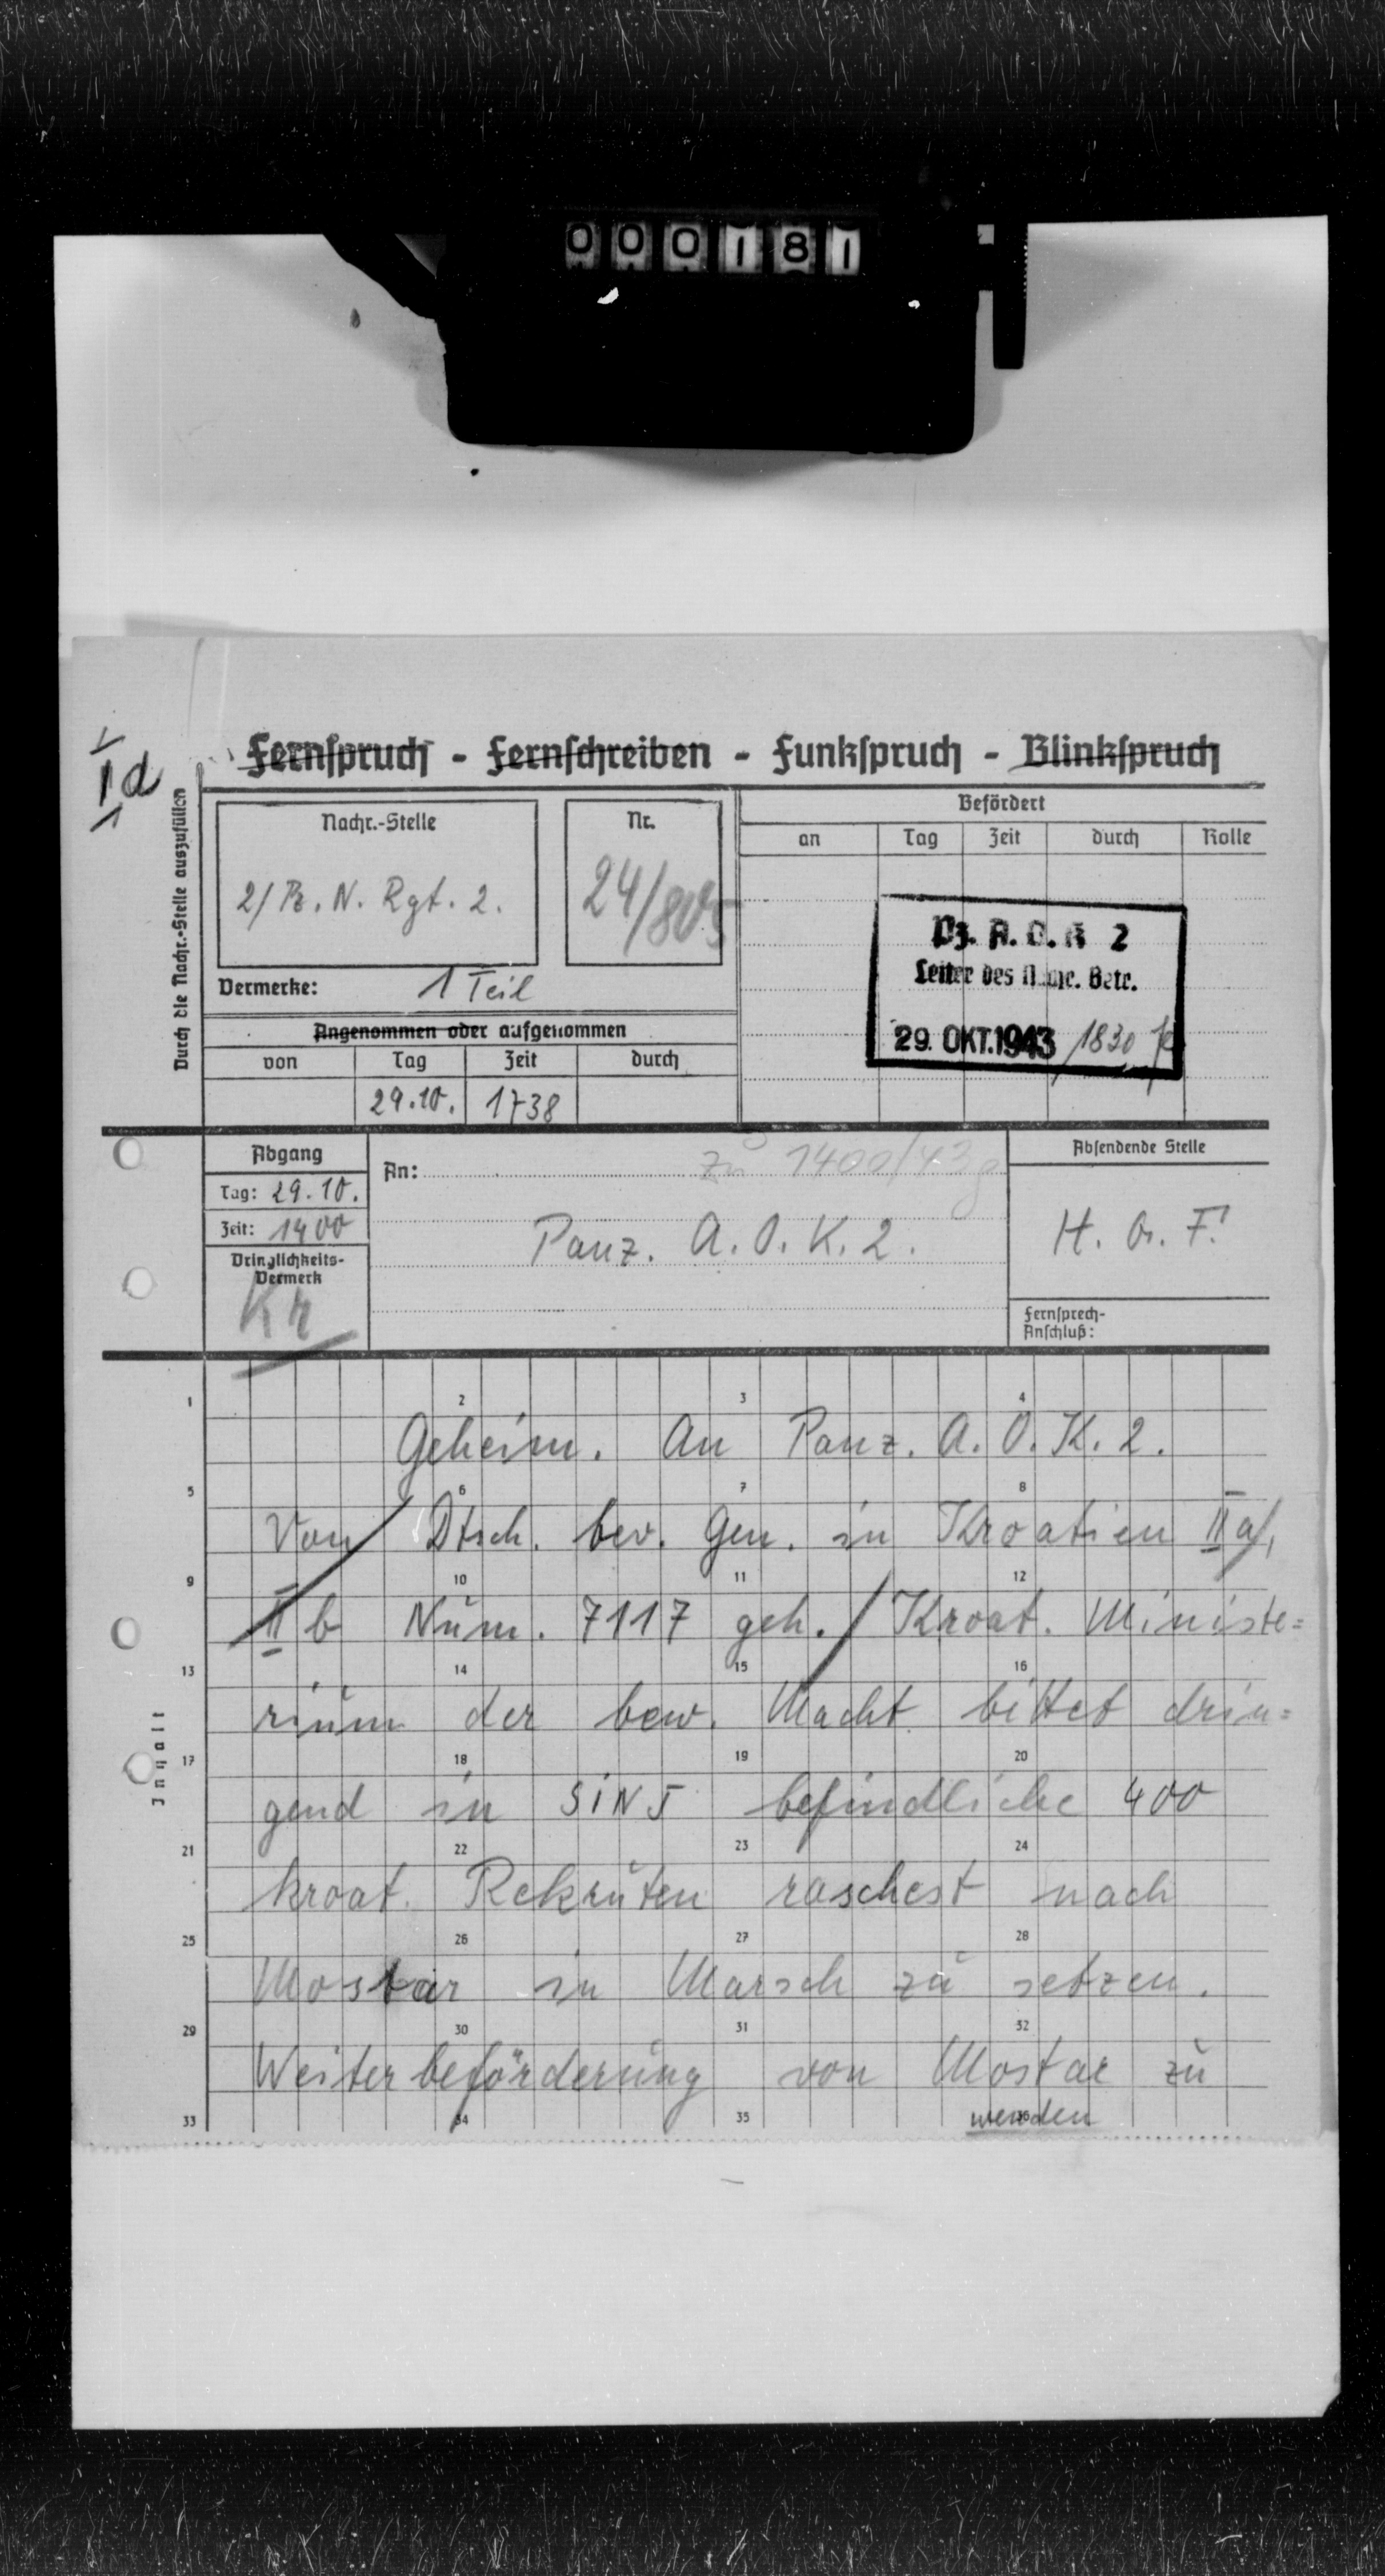 000181
Id
Fernspruch - Fernschreiben - Funkspruch - Blinkspruch
Durch die Nachr.-Stelle auszufüllen
Nachr.-Stelle
2/ Pz. N. Rgt. 2.
Nr.
24/805
Befördert
an Tag Zeit durch Rolle
Pz. A.O.K 2
Leiter des Betr.
29. OKT. 1943 1830
Vermerke: 1 Teil
Angenommen oder aufgenommen
von Tag Zeit durch
29.10. 1738
Abgang
Tag: 29.10.
Zeit: 1400
Dringlichkeits-
Vermerk
Kr
An: zu 1400/43 g
Panz. A.O.K. 2.
Absendende Stelle
Fernsprech-
Anschluß:
Inhalt
1 2 3 4
Geheim. An Panz. A.O.K. 2.
5 6 7 8
Von Dtsch. bev. Gen. in Kroatien II a/,
9 10 11 12
II b Num. 7117 geh. / Kroat. Ministe=
13 14 15 16
rium der bew. Macht bittet drin=
17 18 19 20
gend in SINJ befindliche 400
21 22 23 24
kroat. Rekruten raschest nach
25 26 27 28
Mostar in Marsch zu setzen.
29 30 31 32
Weiterbeförderung von Mostar zu
33 34 35 36
wenden